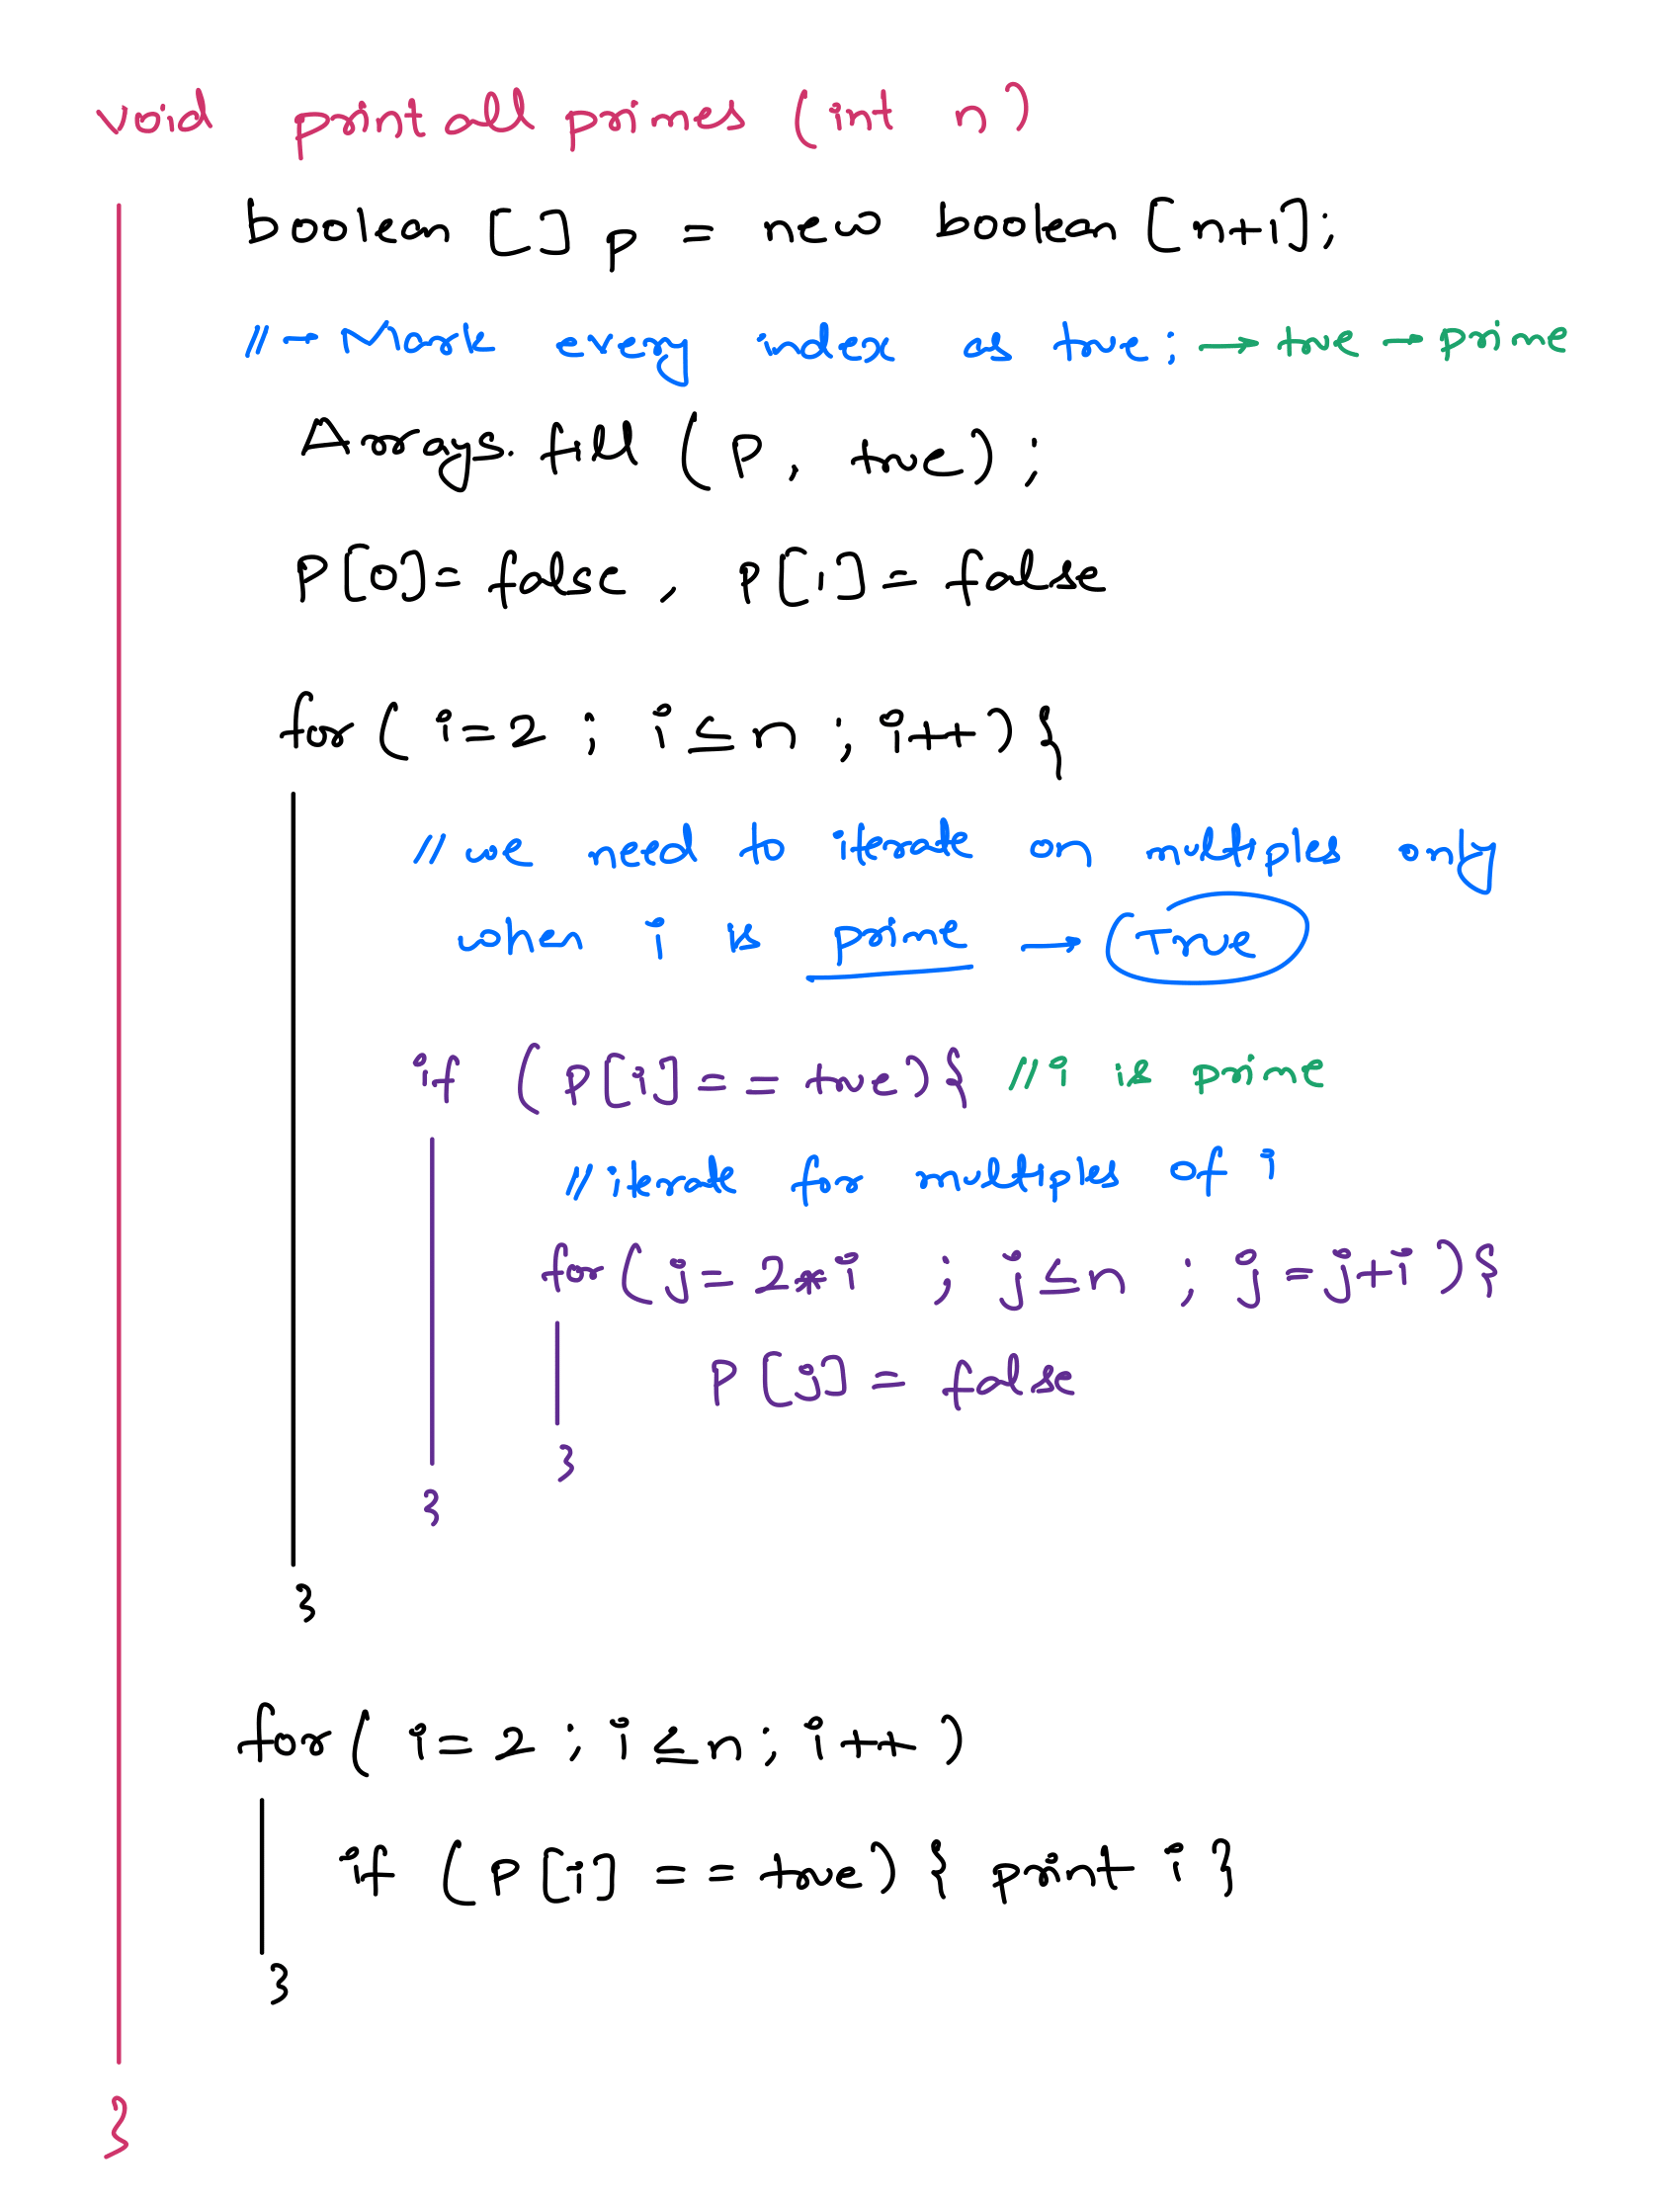 void print all primes (int n)
boolean [] p = new boolean [n+1];
// → Mark every index as true; → true → prime
Arrays.fill (P, true);
P[0] = false, P[1] = false
for ( i=2 ; i≤n ; i++){
// we need to iterate on multiples only
when i is prime → True
if (P[i] == true){ // i is prime
// iterate for multiples of i
for( j= 2*i ; j≤n ; j=j+i ){
P[j] = false
}
}
}
for( i=2 ; i≤n; i++ )
if (P[i] == true) { print i }
}
}